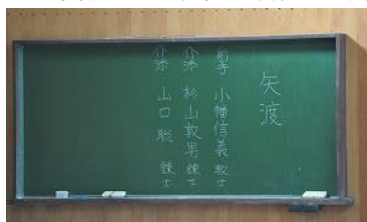 矢渡
射手 小幡信義 教士
介添 杉山敦男 錬士
介添 山口聡 錬士